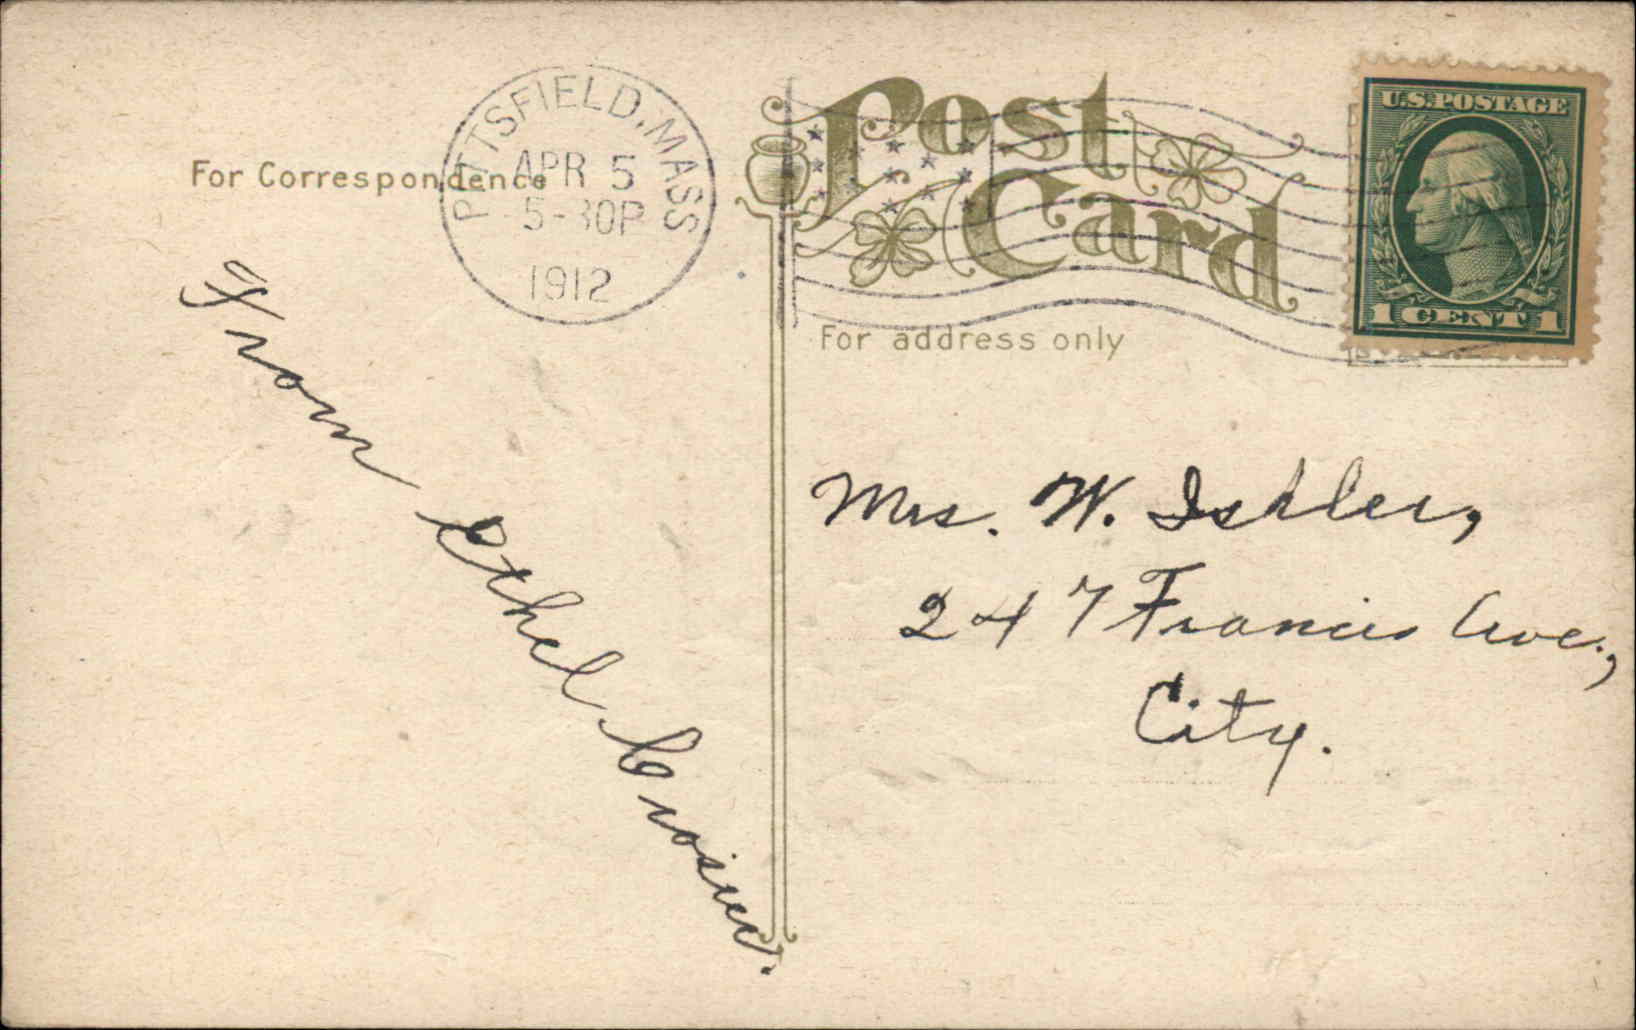 Post
Card
U.S. POSTAGE
1 CENT 1
PITTSFIELD, MASS
APR 5
5-30P
1912
For Correspondence
For address only
From Ethel Crosier.
Mrs. W. Ishler,
247 Francis Ave.,
City.